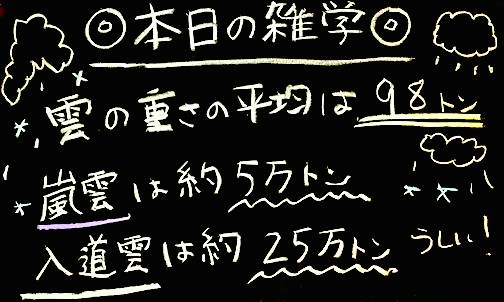 ◎本日の雑学◎
雲の重さの平均は98トン
嵐雲は約5万トン
入道雲は約25万トン